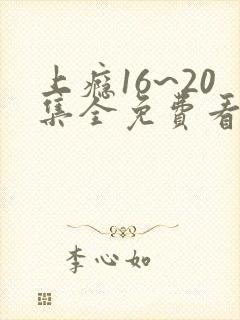 上瘾16~20
集全免費看
李心如